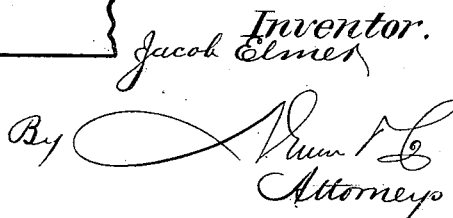 Inventor.
Jacob Elmer
By Munn & Co
Attorneys